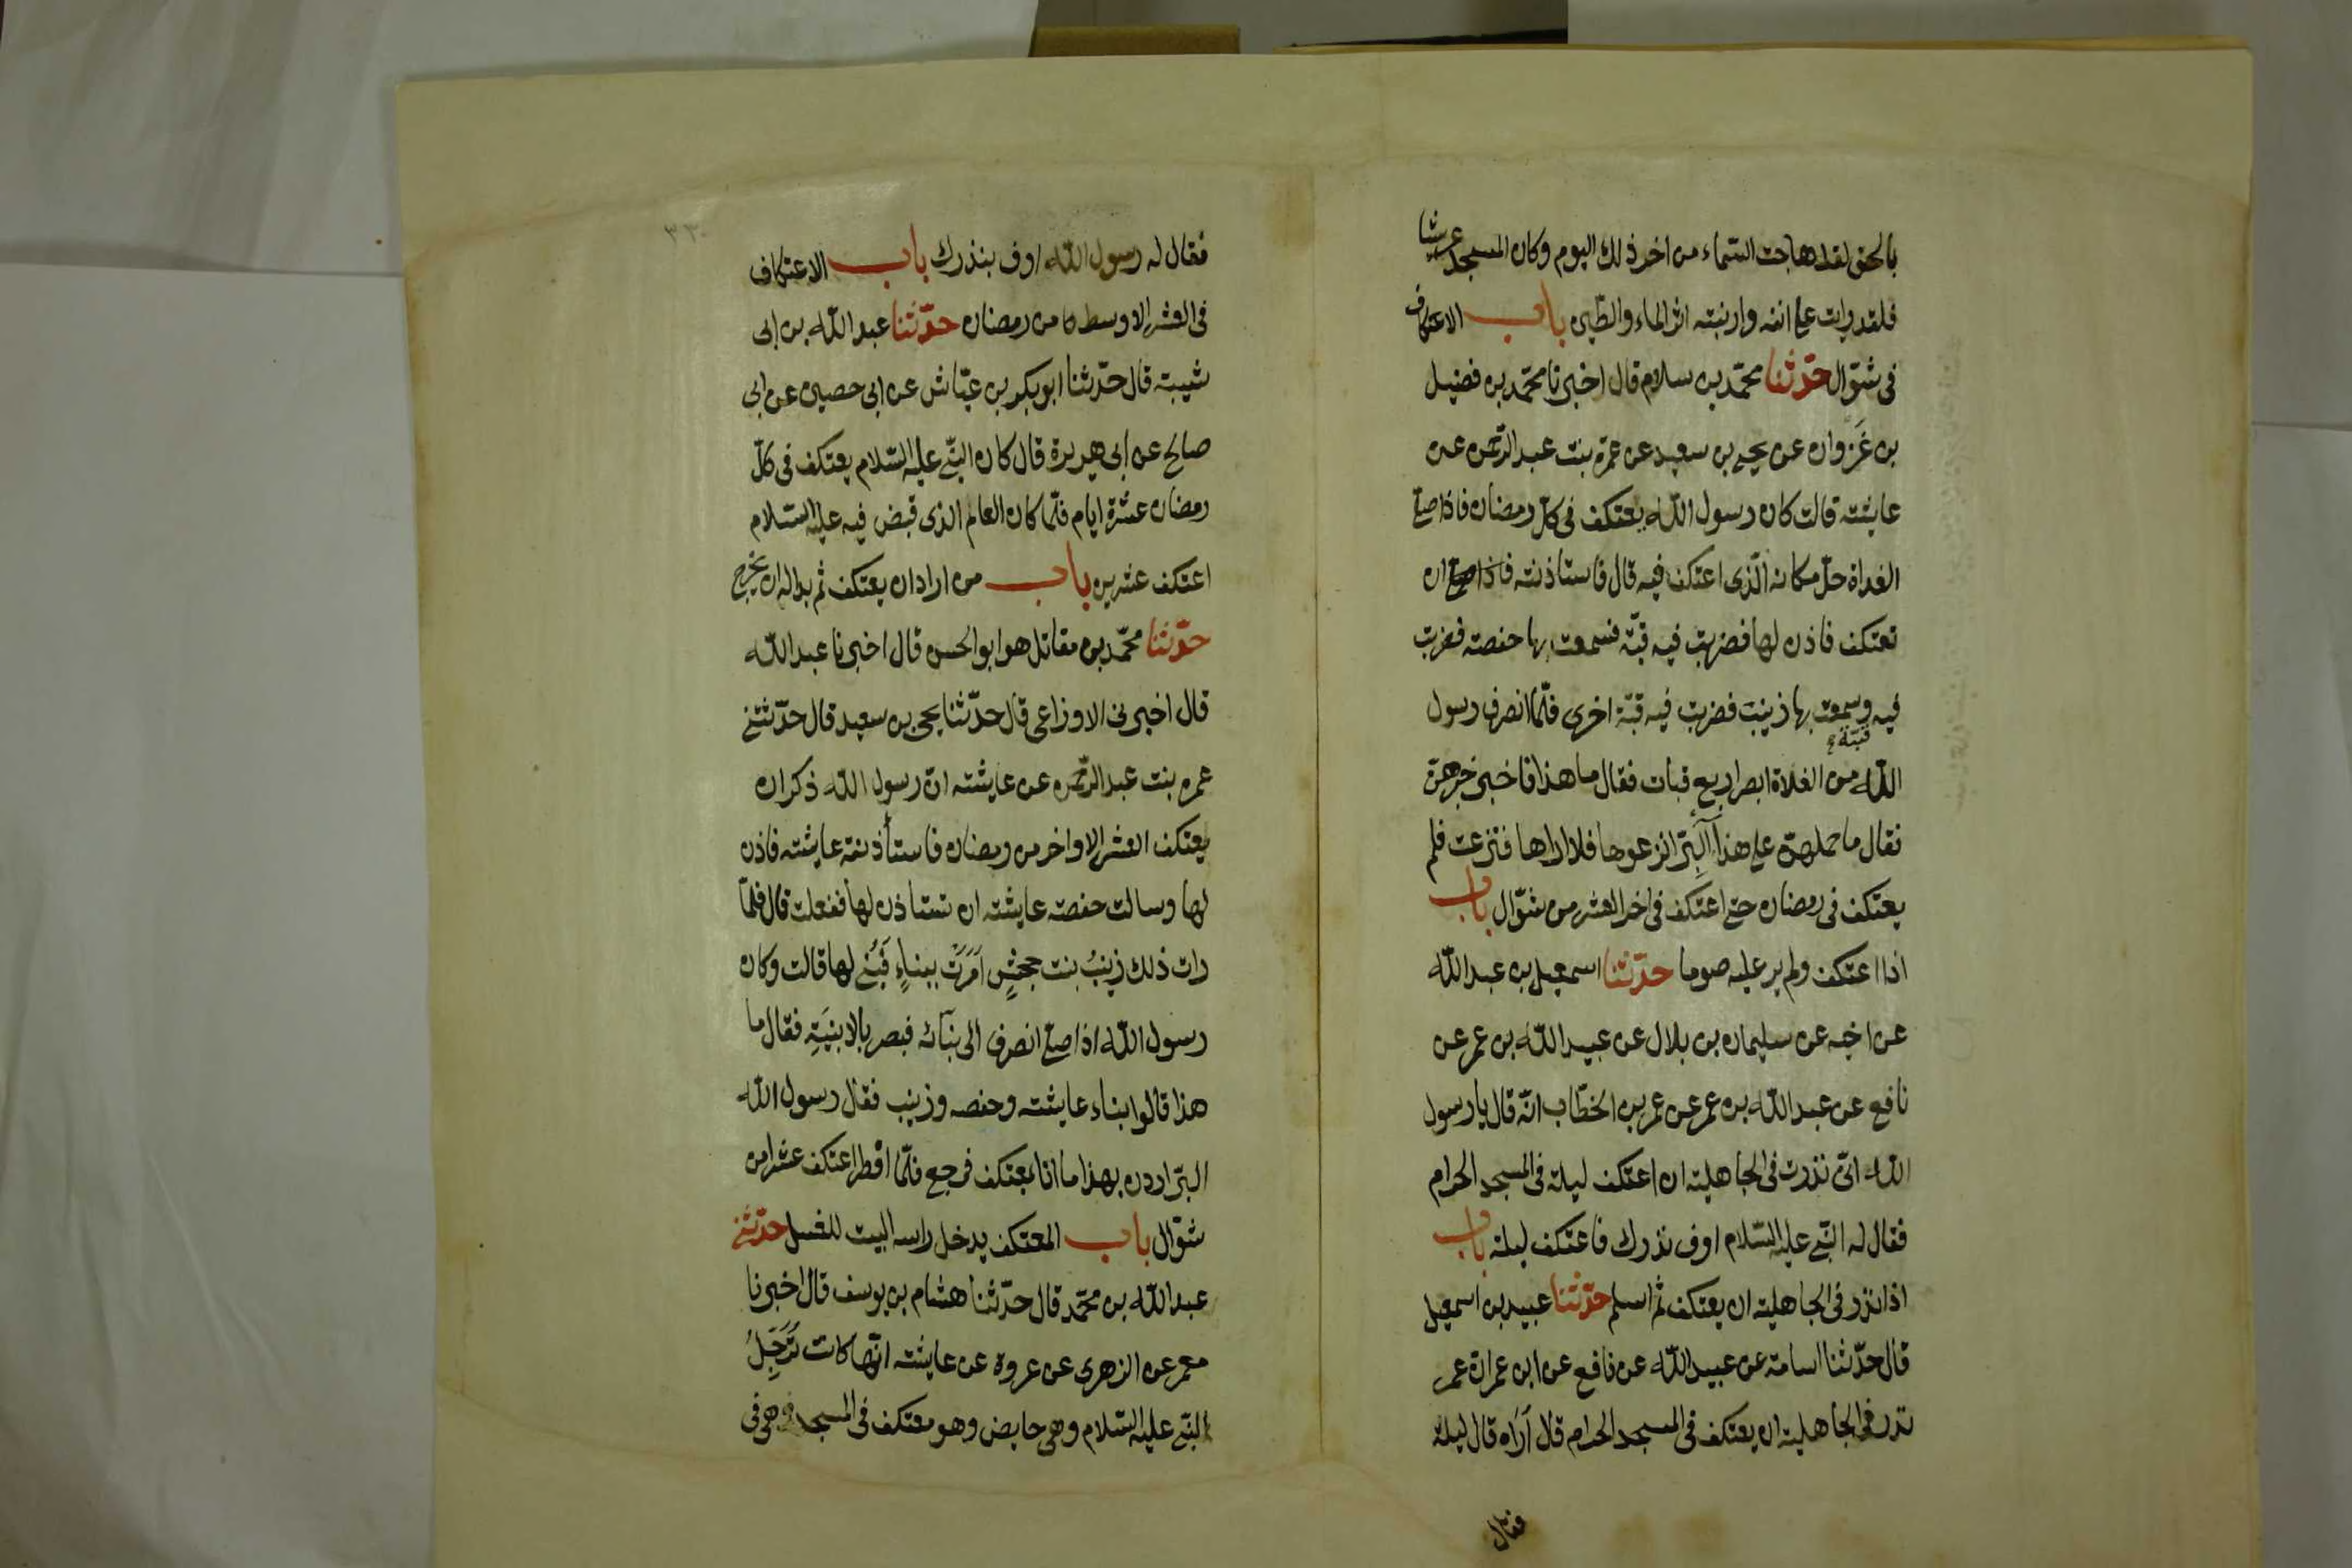 بالحق لقد هاجت السماء من اخر ذلك اليوم وكان المسجد عريشا
فلقد رايت على انفه وارنبته اثر الماء والطين باب الاعتكاف
فى شوّال حدّثنا محمّد بن سلام قال اخبرنا محمّد بن فضيل
بن غَزوان عن يحيى بن سعيد عن عمرة بنت عبد الرّحمن عن
عايشته قالت كان رسول اللّه يعتكف فى كلّ رمضان فاذا صلّى
الغداة حلّ مكانه الّذى اعتكف فيه قال فاستاذنته ان
تعتكف فاذن لها فضربت فيه قبّة فسمعت بها حفصته فضربت
فيه قبّة وسمعت بها زينب فضربت فيه قبّة اخرى فلمّا انصرف رسول
اللّه من الغداة ابصر اربع قبات فقال ما هذا فاخبر خبرهنّ
فقال ما حملهنّ على هذا آلبِرّ انزعوها فلا اراها فنزعت فلم
يعتكف فى رمضان حتى اعتكف فى اخر العشر من شوّال باب
اذا اعتكف ولم ير عليه صوما حدّثنا اسمعيل بن عبد اللّه
عن اخيه عن سليمان بن بلال عن عبيد اللّه بن عمر عن
نافع عن عبد اللّه بن عمر عن عمر بن الخطّاب انّه قال يا رسول
اللّه انّى نذرت فى الجاهلية ان اعتكف ليلة فى المسجد الحرام
فقال له النّبى عليه السّلام اوف نذرك فاعتكف ليلة باب
اذا نذر فى الجاهلية ان يعتكف ثم اسلم حدّثنا عبيد بن اسمعيل
قال حدّثنا اسامة عن عبيد اللّه عن نافع عن ابن عمر انّ عمر
نذر فى الجاهلية ان يعتكف فى المسجد الحرام قال اُرَاه قال ليلة
فقال
٣٣٠
فقال له رسول اللّه اوف بنذرك باب الاعتكاف
فى العشر الاوسط من رمضان حدّثنا عبد اللّه بن ابى
شيبة قال حدّثنا ابو بكر بن عيّاش عن ابى حصين عن ابى
صالح عن ابى هريرة قال كان النبّى عليه السّلام يعتكف فى كلّ
رمضان عشرة ايام فلمّا كان العام الذى قبض فيه عليه السّلام
اعتكف عشرين باب من اراد ان يعتكف ثم بدا له ان يخرج
حدّثنا محمّد بن مقاتل هو ابو الحسن قال اخبرنا عبد اللّه
قال اخبرنى الاوزاعى قال حدّثنا يحيى بن سعيد قال حدّثتنى
عمره بنت عبد الرّحمن عن عايشته انّ رسول اللّه ذكر ان
يعتكف العشر الاواخر من رمضان فاستأذنته عايشته فاذن
لها وسالت حفصته عايشته ان تستاذن لها ففعلت قال فلمّا
رات ذلك زينبُ بنت جحشٍ اَمَرَتْ ببناءٍ فَبُنِى لها قالت وكان
رسول اللّه اذا صلّى انصرف الى بنائه فبصر بالابنيَةِ فقال ما
هذا قالوا بناء عايشته وحفصه وزينب فقال رسول اللّه
البرّ اردن بهذا ما انا بمعتكف فرجع فلمّا افطر اعتكف عشرا من
شوّال باب المعتكف يدخل راسه البيت للغسل حدّثنى
عبد اللّه بن محمّد قال حدّثنا هشام بن يوسف قال اخبرنا
معمر عن الزهرى عن عروة عن عايشته انّها كانت تُرَجِّلُ
النبّى عليه السّلام وهى حايض وهو معتكف فى المسجد وهى فى